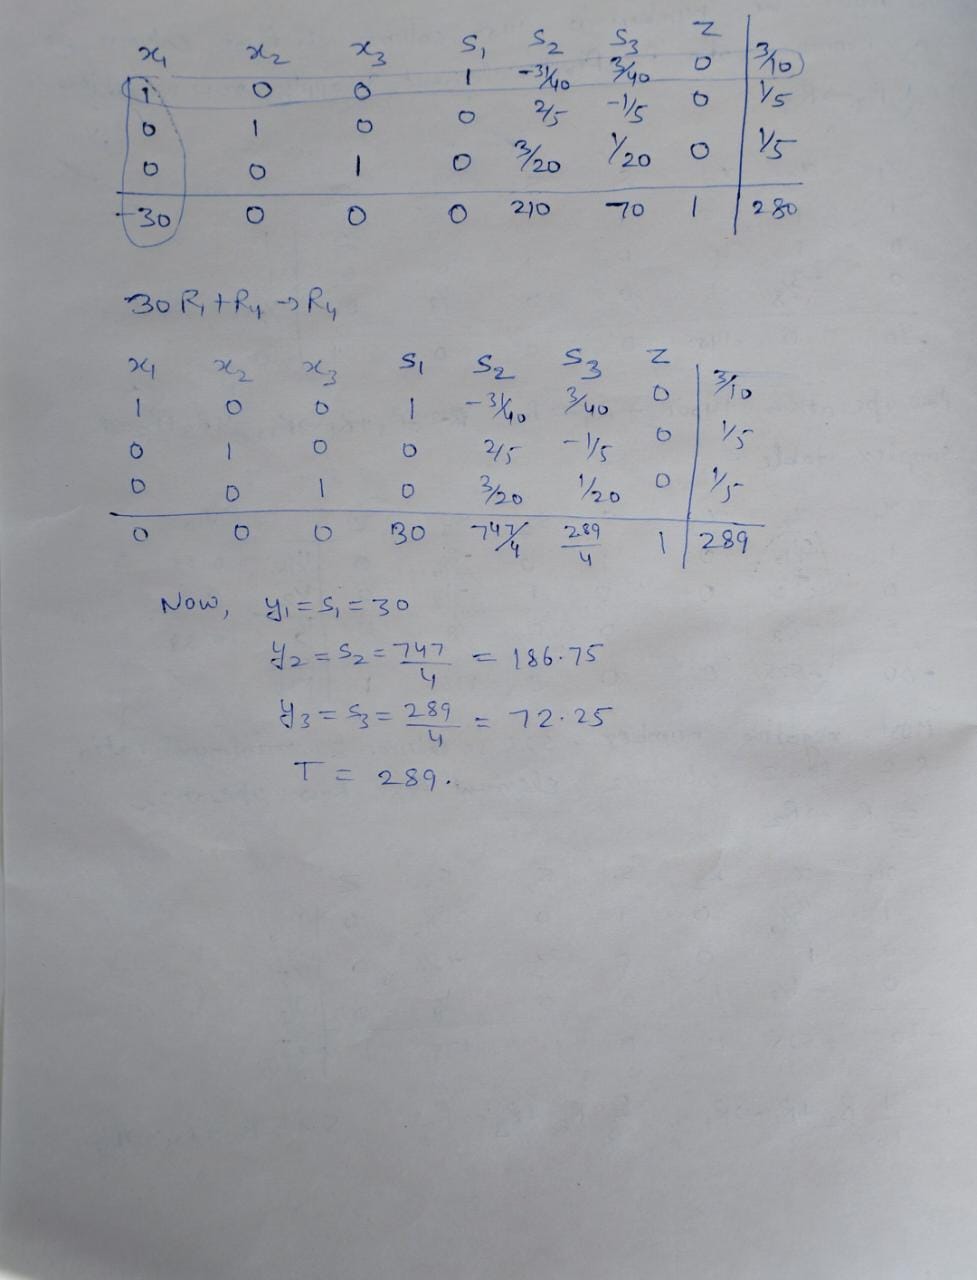 x₁ x₂ x₃ S₁ S₂ S₃ Z
1 0 0 1 -31/40 3/40 0 3/10
0 1 0 0 2/5 -1/5 0 1/5
0 0 1 0 3/20 1/20 0 1/5
-30 0 0 0 210 70 1 280
30 R₁ + R₄ → R₄
x₁ x₂ x₃ S₁ S₂ S₃ Z
1 0 0 1 -31/40 3/40 0 3/10
0 1 0 0 2/5 -1/5 0 1/5
0 0 1 0 3/20 1/20 0 1/5
0 0 0 30 747/4 289/4 1 289
Now, y₁ = S₁ = 30
y₂ = S₂ = 747/4 = 186.75
y₃ = S₃ = 289/4 = 72.25
T = 289.